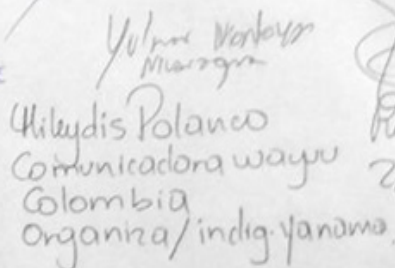 Nicaragua
Mileydis Polanco
Comunicadora wayuu
Colombia
Organiza/indig. Yanama.